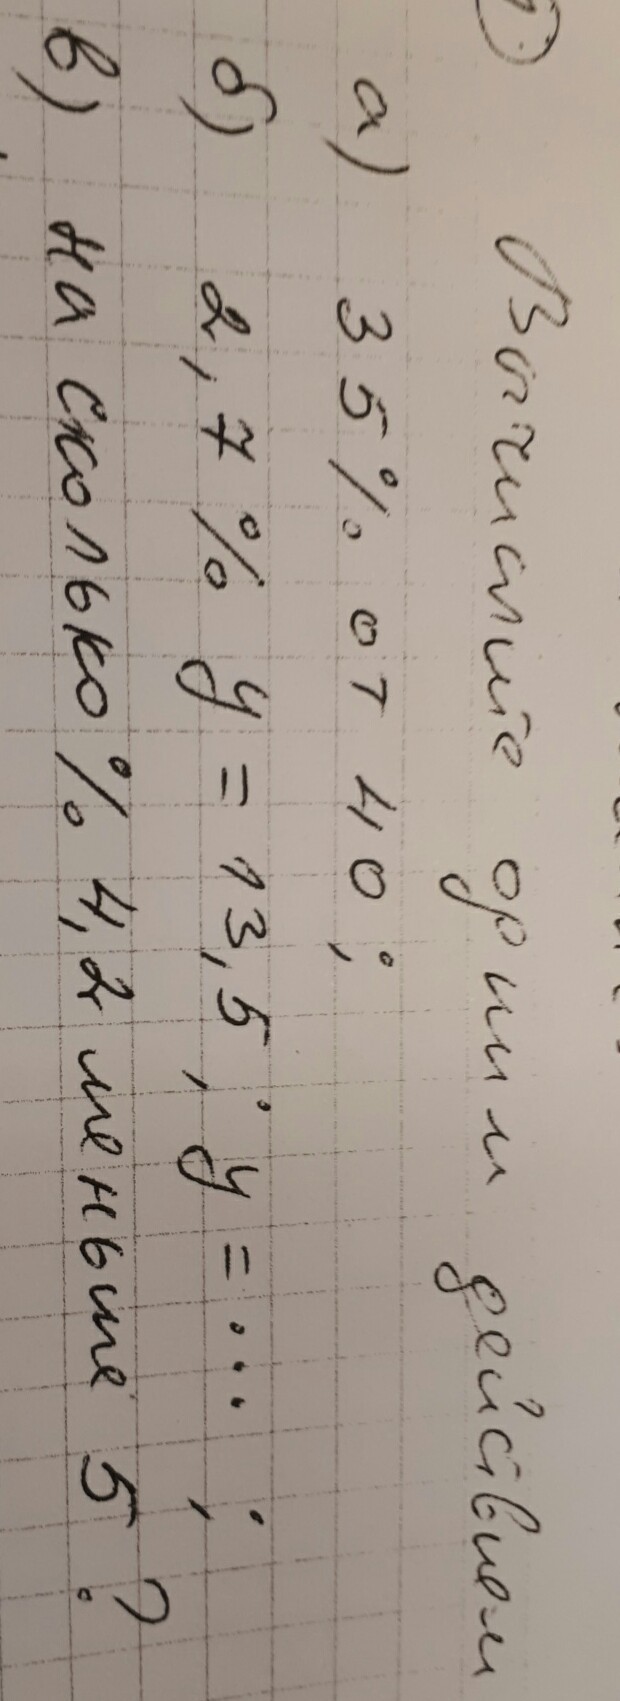 Вычислите одним действием
а) 35% от 40;
б) 2,7% у = 13,5; у = ... ;
в) на сколько % 4,2 меньше 5?